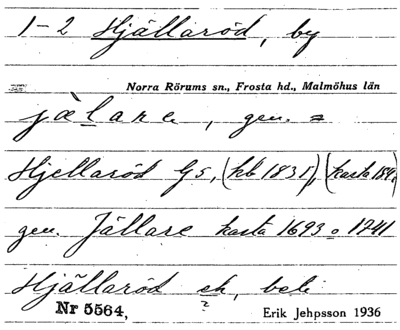 1-2 Hjällaröd, by
Norra Rörums sn., Frosta hd., Malmöhus län
jälare, gen. =
Hjellaröd Gs, (hb 1831), (karta 1841)
gen. Jällare karta 1693 o 1741
Hjällaröd ek, beb.
Nr 5564, Erik Jehpsson 1936